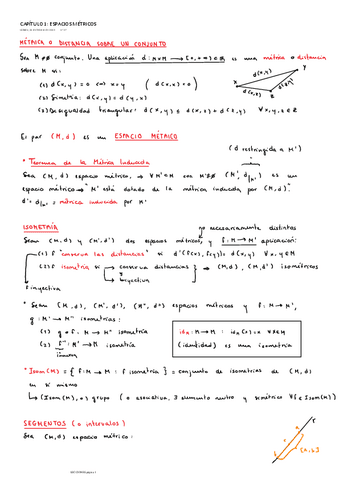 CAPÍTULO 1: ESPACIOS MÉTRICOS
MÉTRICA O DISTANCIA SOBRE UN CONJUNTO
Sea M≠∅ conjunto. Una aplicación d: M×M → [0,+∞) ∈ ℝ es una métrica o distancia
sobre M si:
(1) d(x,y) = 0 ⇔ x=y ( d(x,x) = 0 )
(2) Simetría: d(x,y) = d(y,x)
(3) Desigualdad triangular: d(x,y) ≤ d(x,z) + d(z,y) ∀x,y,z ∈ M
x
d(x,y)
y
d(x,z)
z
El par (M,d) es un ESPACIO MÉTRICO
(d restringida a M')
* Teorema de la Métrica Inducida
Sea (M,d) espacio métrico, → ∀ M' ⊂ M con M'≠∅ (M', d|M') es un
espacio métrico → "M' está dotado de la métrica inducida por (M,d)."
d' = d|M' = métrica inducida por M'
ISOMETRÍA
no necesariamente distintos
Sean (M,d) y (M',d') dos espacios métricos, y f: M → M' aplicación:
(1) f "conserva las distancias" si d'(f(x), f(y)) = d(x,y) ∀x,y ∈ M
(2) f isometría si conserva distancias y biyectiva ⇒ (M,d), (M',d') isométricos
f inyectiva
* Sean (M,d), (M',d'), (M'',d'') espacios métricos y f: M → M',
g: M' → M'' isometrías:
(1) g∘f: M → M'' isometría
(2) f⁻¹: M' → M isometría
inversa
id_M: M → M : id_M(x) = x ∀x∈M
(identidad) es una isometría
* Isom(M) = { f: M → M : f isometría } = conjunto de isometrías de (M,d)
en sí mismo
↳ (Isom(M), ∘) grupo (∘ asociativa, ∃ elemento neutro y simétrico ∀f ∈ Isom(M))
SEGMENTOS (o intervalos)
Sea (M,d) espacio métrico: